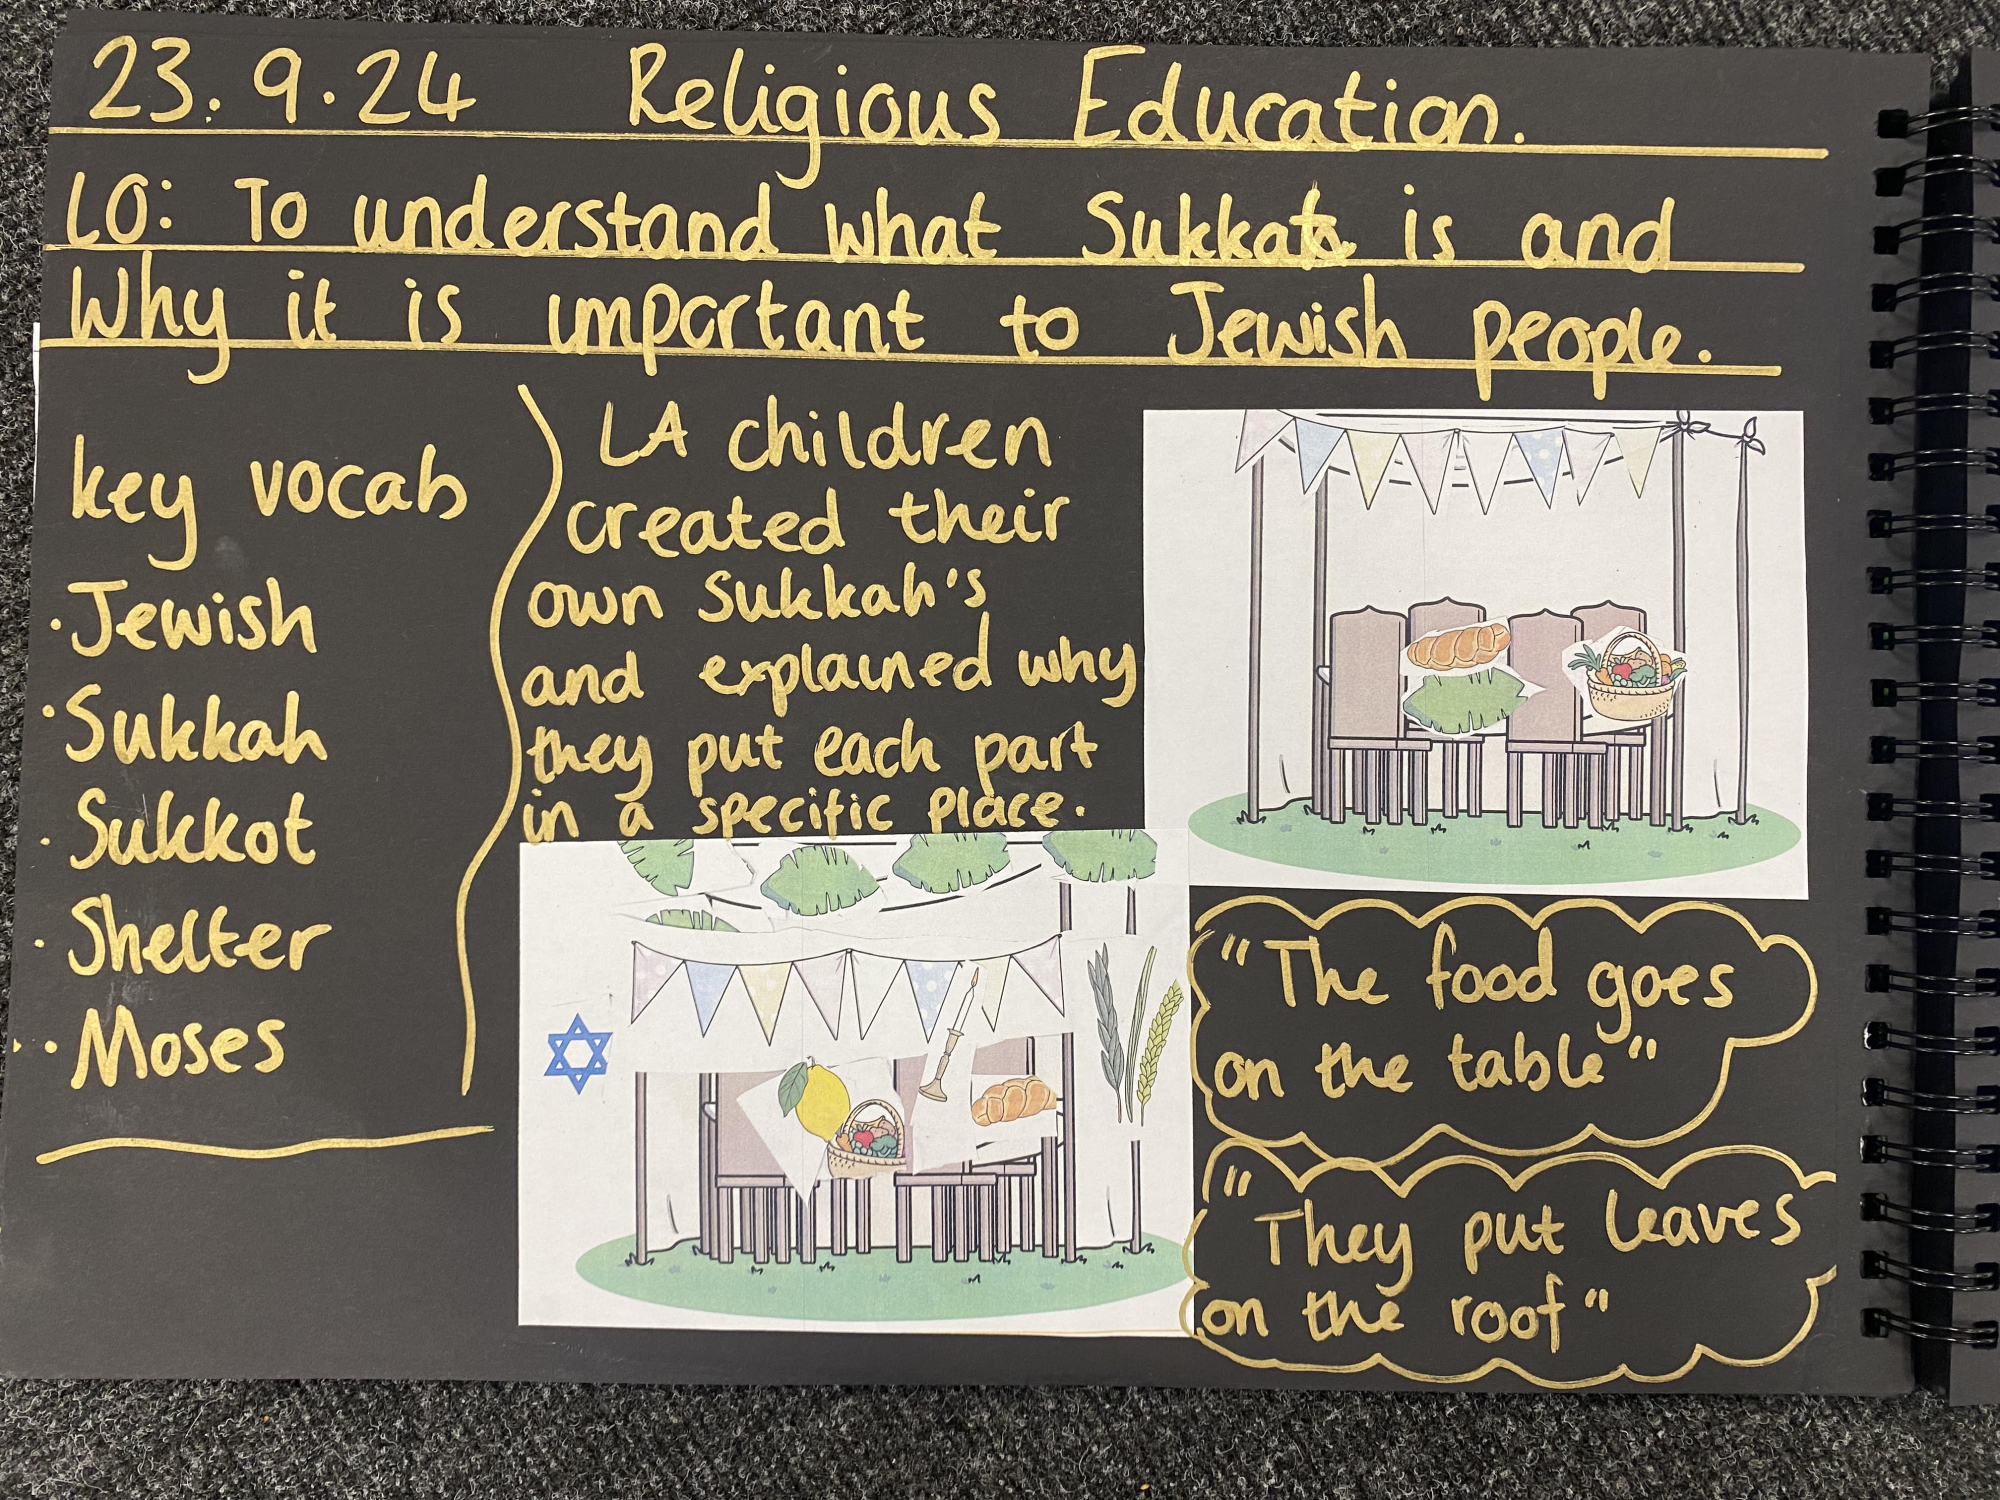 23.9.24 Religious Education.
LO: To understand what Sukkat is and
Why it is important to Jewish people.
key vocab
· Jewish
· Sukkah
· Sukkot
· Shelter
· Moses
LA children
created their
own Sukkah's
and explained why
they put each part
in a specific place.
"The food goes
on the table"
"They put leaves
on the roof"